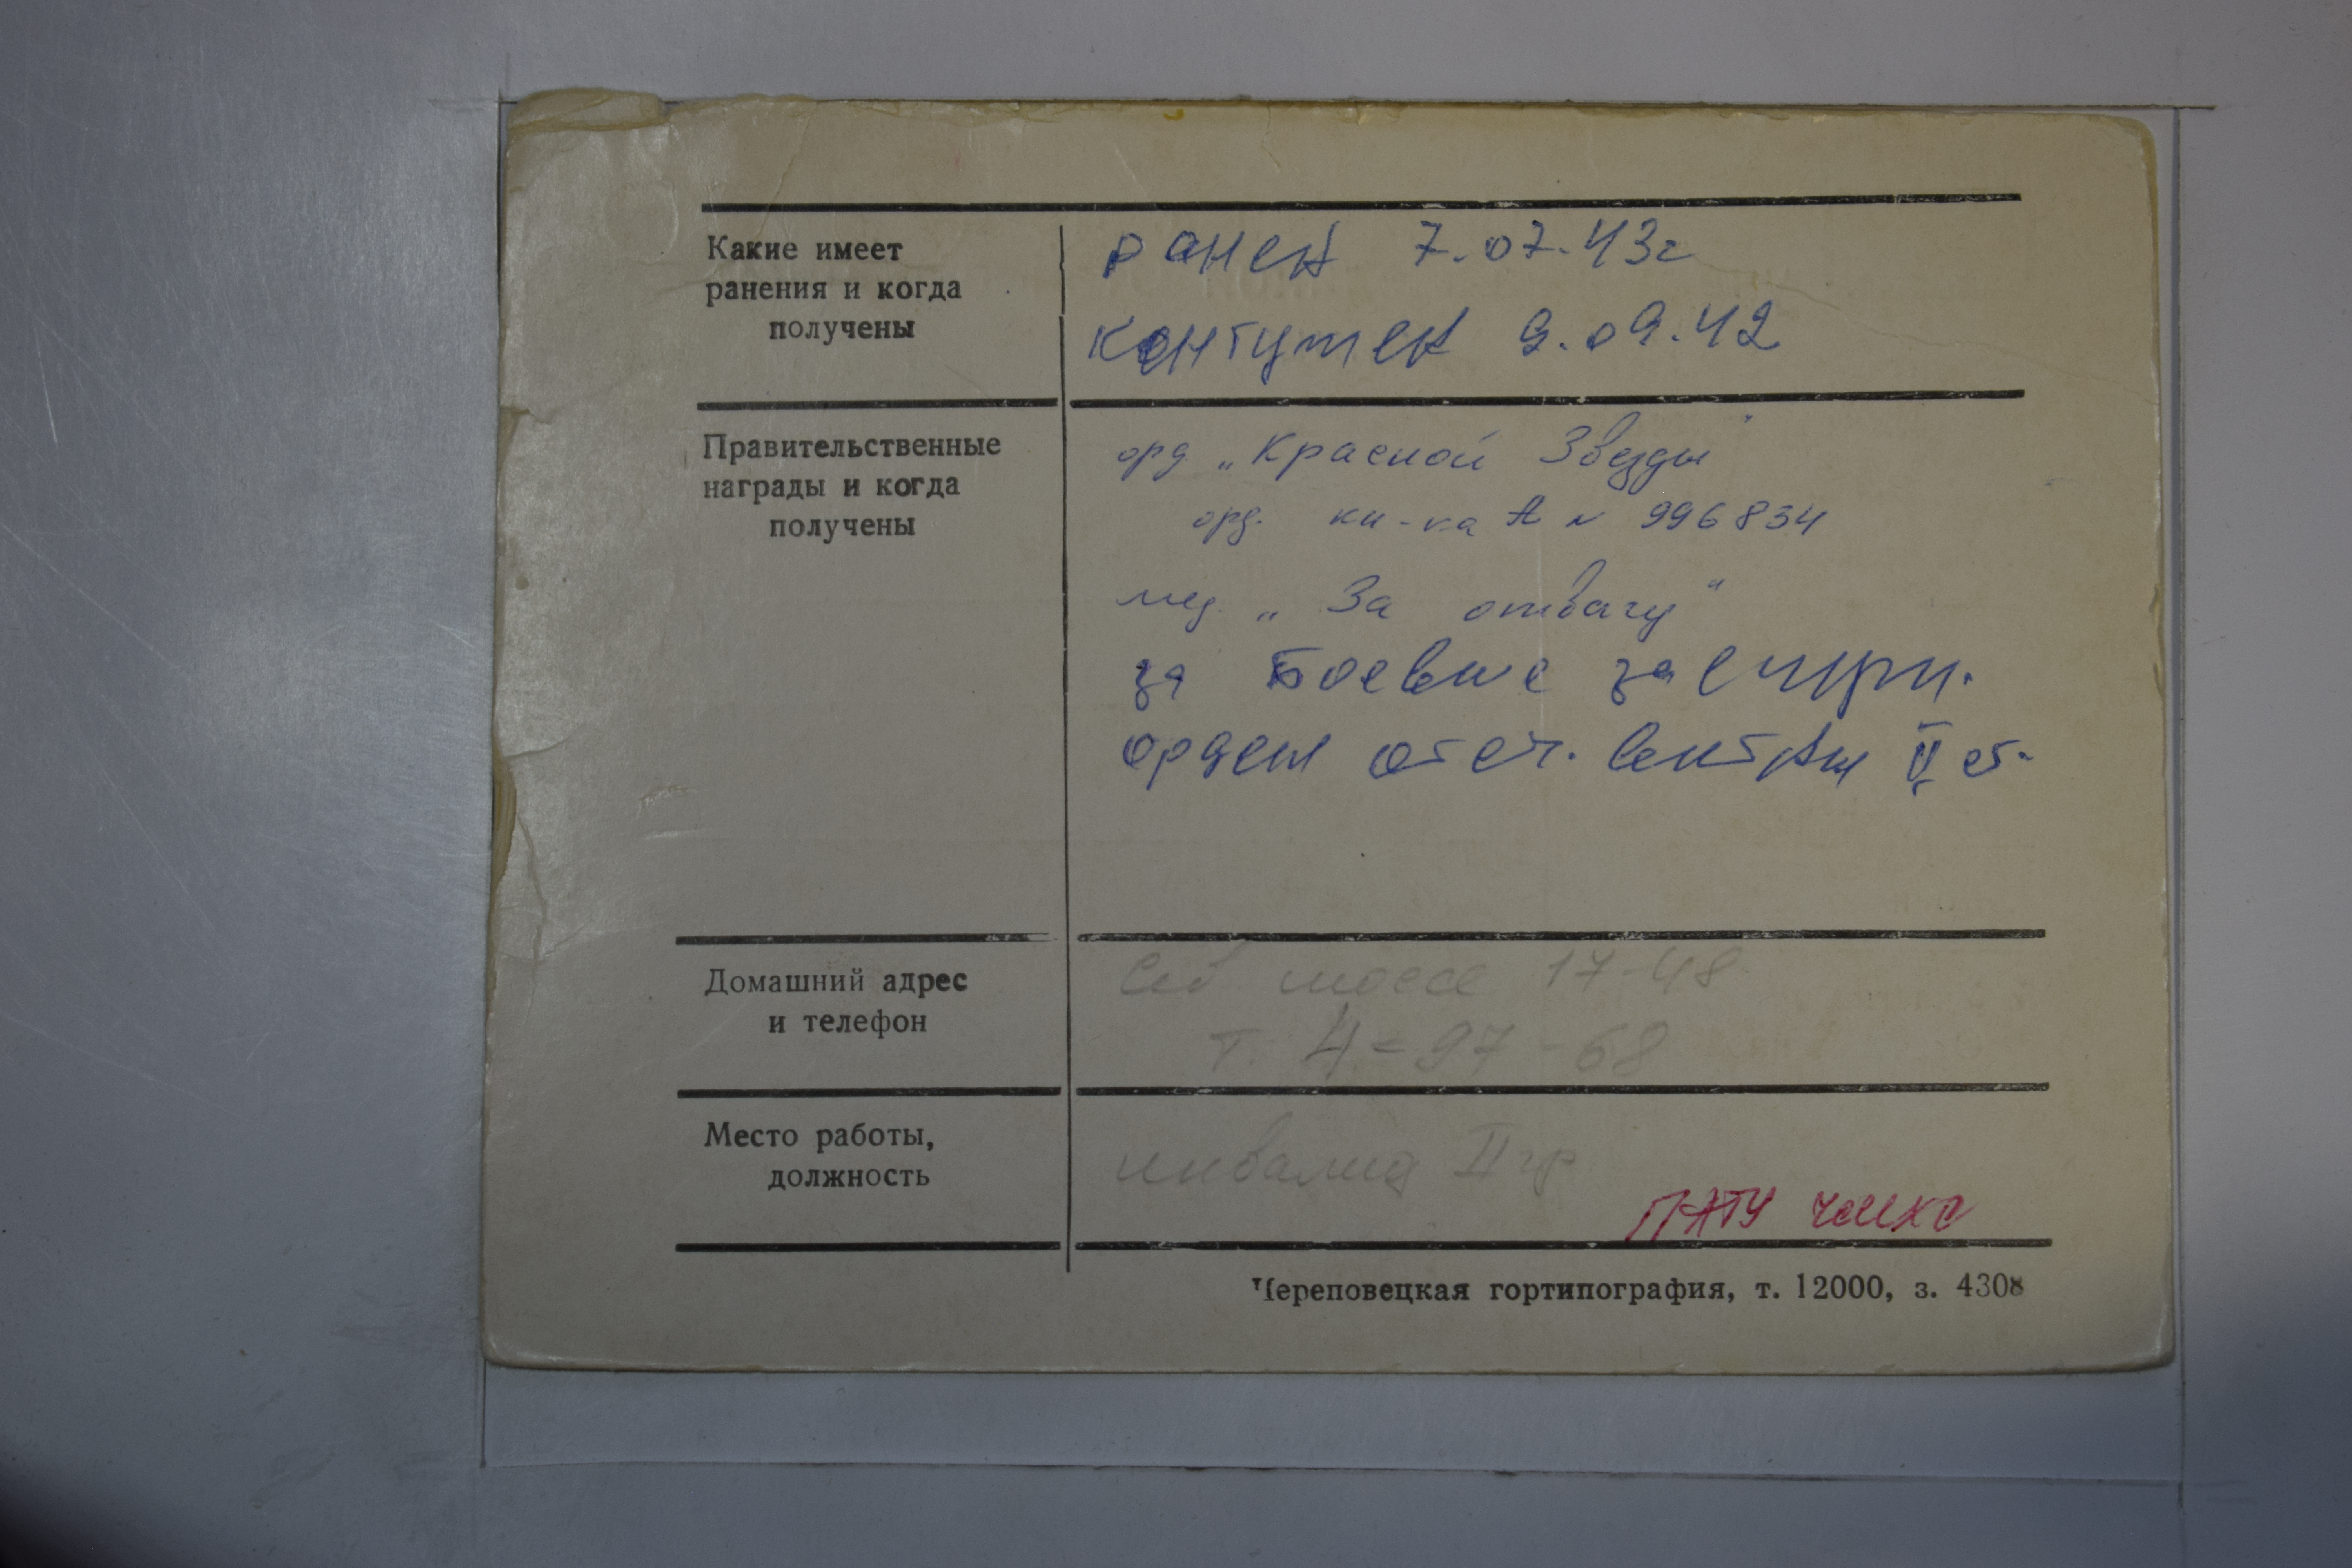 Какие имеет
ранения и когда
получены
ранен 7.07.43г
контужен 9.09.42
Правительственные
награды и когда
получены
орд „Красной Звезды"
орд. кн-ка А № 996834
мед. „За отвагу"
за боевые заслуги.
орден отеч. войны II ст.
Домашний адрес
и телефон
Сев. шоссе 17-48
т. 4-97-68
Место работы,
должность
инвалид II гр
Череповецкая гортипография, т. 12000, з. 4308